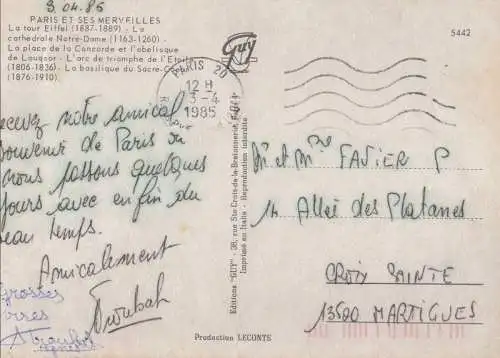 3.04.85
PARIS ET SES MERVEILLES
La tour Eiffel (1887-1889) - La
cathédrale Notre-Dame (1163-1260) -
La place de la Concorde et l'obélisque
de Louqsor - L'arc de triomphe de l'Etoile
(1806-1836) - La basilique du Sacré-Cœur
(1876-1910).
Guy
5442
PARIS 20
12 H
3-4
1985
recevez notre amical
souvenir de Paris où
nous passons quelques
jours avec enfin du
beau temps.
Amicalement
grosses
Editions "GUY" - 38, rue Ste-Croix-de-la-Bretonnerie, Paris
Imprimé en Italie - Reproduction interdite
Mr et Mme FAVIER P
14 Allée des Platanes
CROIX SAINTE
13500 MARTIGUES
Production LECONTE